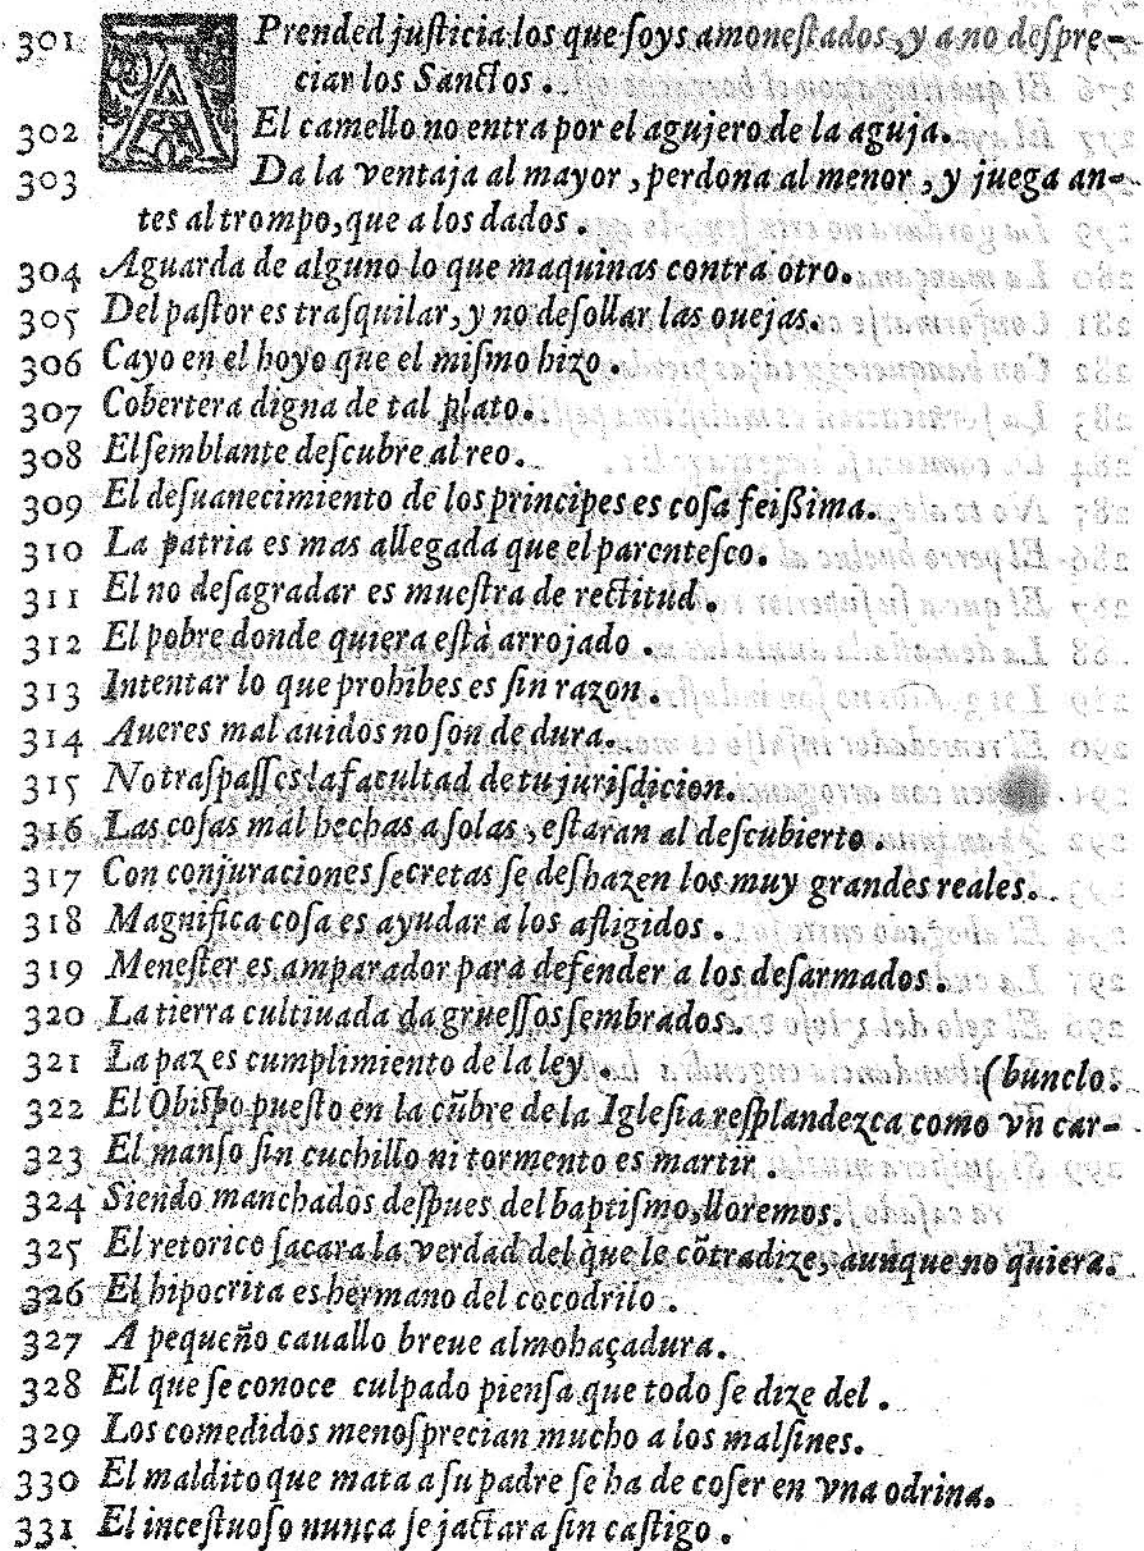 301 APrended justicia los que soys amonestados, y a no despre-
ciar los Sanctos.
302 El camello no entra por el agujero de la aguja.
303 Da la ventaja al mayor, perdona al menor, y juega an-
tes al trompo, que a los dados.
304 Aguarda de alguno lo que maquinas contra otro.
305 Del pastor es trasquilar, y no desollar las ouejas.
306 Cayo en el hoyo que el mismo hizo.
307 Cobertera digna de tal plato.
308 El semblante descubre al reo.
309 El desuanecimiento de los principes es cosa feißima.
310 La patria es mas allegada que el parentesco.
311 El no desagradar es muestra de rectitud.
312 El pobre donde quiera està arrojado.
313 Intentar lo que prohibes es sin razon.
314 Aueres mal auidos no son de dura.
315 No traspasses la facultad de tu jurisdicion.
316 Las cosas mal hechas a solas, estaran al descubierto.
317 Con conjuraciones secretas se deshazen los muy grandes reales.
318 Magnifica cosa es ayudar a los afligidos.
319 Menester es amparador para defender a los desarmados.
320 La tierra cultiuada da gruessos sembrados.
321 La paz es cumplimiento de la ley. (bunclo.
322 El Obispo puesto en la cũbre de la Iglesia resplandezca como vn car-
323 El manso sin cuchillo ni tormento es martir.
324 Siendo manchados despues del baptismo, lloremos.
325 El retorico sacara la verdad del que le cõtradize, aunque no quiera.
326 El hipocrita es hermano del cocodrilo.
327 A pequeño cauallo breue almohaçadura.
328 El que se conoce culpado piensa que todo se dize del.
329 Los comedidos menosprecian mucho a los malsines.
330 El maldito que mata a su padre se ha de coser en vna odrina.
331 El incestuoso nunca se jactara sin castigo.